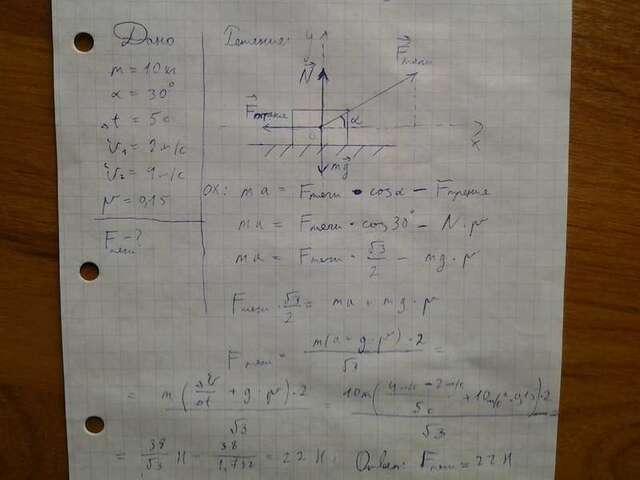 Дано
Решение:
m = 10 кг
α = 30°
Δt = 5 с
v₁ = 2 м/с
v₂ = 4 м/с
μ = 0,15
Fтяги - ?
y
N
Fтяги
Fтрения
α
0
x
mg
OX: ma = Fтяги · cosα − Fтрения
ma = Fтяги · cos30° − N · μ
ma = Fтяги · √3/2 − mg · μ
Fтяги · √3/2 = ma + mg · μ
Fтяги = m(a + g · μ) · 2 / √3 =
= m(Δv/Δt + g · μ) · 2 / √3 = 10 (4 м/с − 2 м/с / 5с + 10 м/с² · 0,15) · 2 / √3 =
= 38/√3 Н = 38/1,732 = 22 Н. Ответ: Fтяги = 22 Н